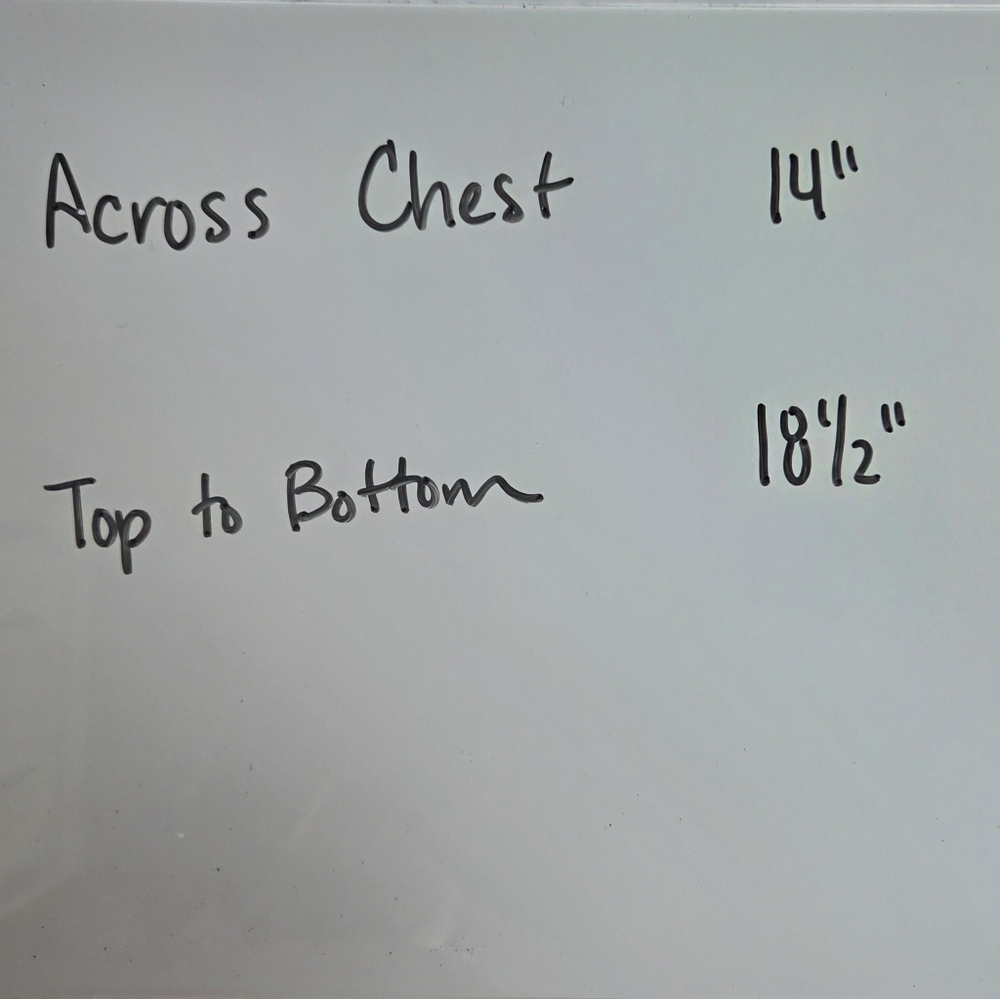 Across Chest 14"
Top to Bottom 18 1/2"